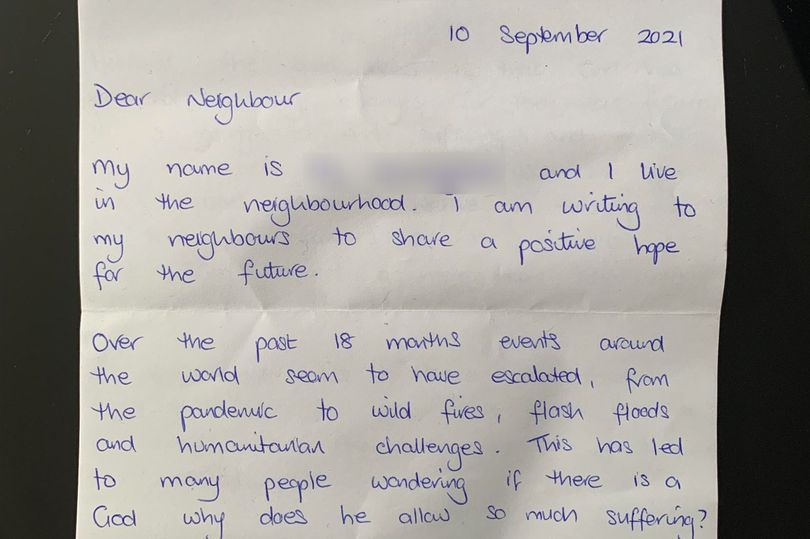 10 September 2021
Dear Neighbour
My name is and I live
in the neighbourhood. I am writing to
my neighbours to share a positive hope
for the future.
Over the past 18 months events around
the world seem to have escalated, from
the pandemic to wild fires, flash floods
and humanitarian challenges. This has led
to many people wondering if there is a
God why does he allow so much suffering?